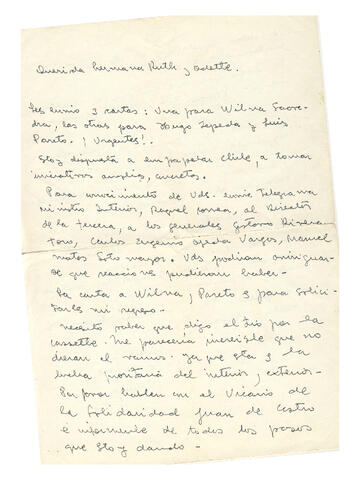 Querida hermana Ruth y Odette.
Les envio 3 cartas: Una para Wilna Saave-
dra, las otras para Hugo Zepeda y Luis
Pareto. ¡Urgentes!.
Estoy dispuesta a empapelar Chile, a tomar
iniciativas amplias, concretas.
Para conocimiento de Uds. envie Telegrama
ministro Interior, Raquel Correa, al Director
de la Tercera, a los generales Gustavo Rivera
Toro, Carlos Eugenio Ojeda Vargas, Manuel
matas Soto mayor. Uds podrian averiguar
de que reacciones pudieran haber-
La carta a Wilna, Pareto y para solici-
tarles mi regreso-
necesito saber que dijo el Tio por la
cassette. Me pareceria increible que no
dieran el ramos. ya que esta es la
lucha prioritaria del interior y exterior-
Por favor hablen con el Vicario de
la Solidaridad Juan de Castro
é informenle de todos los pasos
que estoy dando-